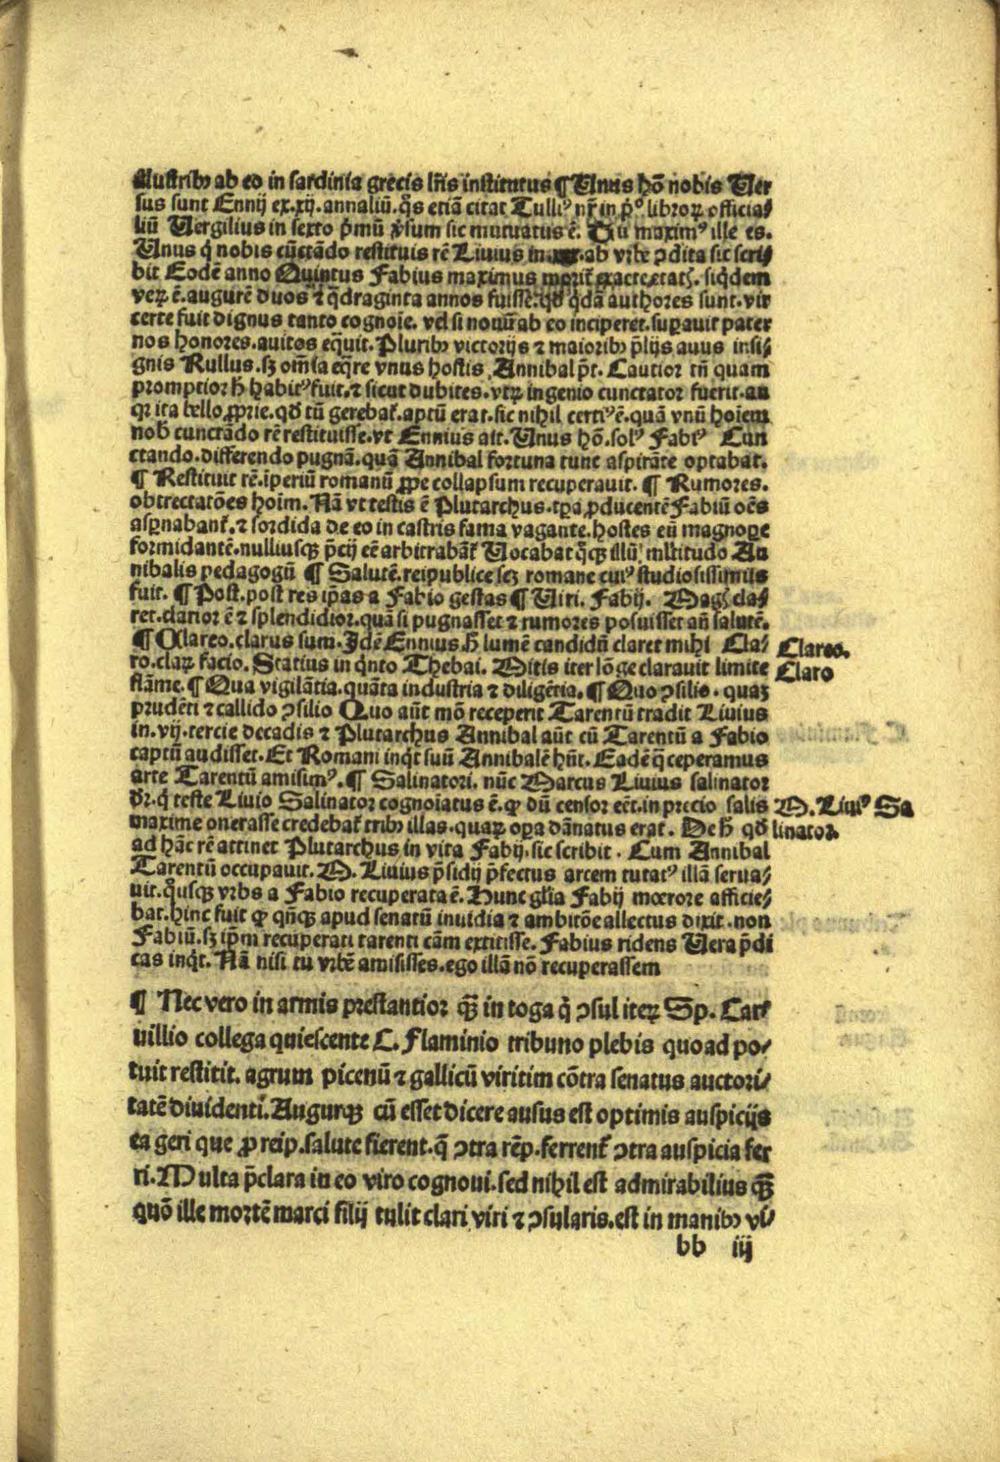 illustribꝰ ab eo in sardinia grecis lr̄is institutus ¶ Unus hō nobis Uer
sus sunt Ennij ex.xij.annaliū.q̄s etiā citat Tulliꝰ nr̄ in p̄ᵒ libroꝝ officia/
liū Uergilius in sexto p̄mū v̄sum sic mutuatus ē. Tu maximꝰ ille es.
Unus q̇ nobis cūctādo restituis rē Liuius in ab vrbe ꝯdita sic scri/
bit Eodē anno Quintus Fabius maximus morit᷑ exacte etat. siqdem
veꝝ ē.augurē duos ⁊ q̄draginta annos fuisse.qd̓ q̇dā authores sunt.vir
certe fuit dignus tanto cognoīe. vel si nouū ab eo inciperet.suꝑauit pater
nos honores.auitos equit.Pluribꝰ victorijs ⁊ maioribꝰ p̄lijs auus insi/
gnis Rullus.sꝫ om̄ia eq̄re vnus hostis Annibal pt̄. Cautior tn̄ quam
promptior h̄ habitꝰ fuit.⁊ sicut dubites.vtꝝ ingenio cunctator fuerit.an
qꝛ ita bello ꝓprie.qd̓ tū gerebat᷑.aptū erat.sic nihil certiꝰ ē.quā vnū hoīem
nob̄ cunctādo rē restituisse.vt Ennius ait.Unus hō.solꝰ Fabiꝰ Cun
ctando.differendo pugnā.quā Annibal fortuna tunc aspirāte optabat.
¶ Restituit rē.iperiū romanū ꝓpe collapsum recuperauit. ¶ Rumores.
obtrectatōes hoīm. Nā vt testis ē Plutarchus.tꝑa ꝓducentē Fabiū oēs
asꝑnabant᷑.⁊ sordida de eo in castris fama vagante.hostes eū magnoꝑe
formidantē.nulliusqꝫ p̄cij eē arbitrabāt᷑ Uocabat q̇qꝫ illū ml̄titudo An
nibalis pedagogū ¶ Salutē.reipublice scꝫ romane cuiꝰ studiosissimus
fuit. ¶ Post.post res ip̄as a Fabio gestas ¶ Uiri. Fabij. Magꝭ cla/
ret.clarior ē ⁊ splendidior.quā si pugnasset ⁊ rumores posuisset an̄ salutē.
¶ Clareo.clarus sum.Idē Ennius h̄ lumē candidū claret mihi Cla/ Clareo.
ro.claꝝ facio. Statius in q̇nto Thebai. Mitis iter lōge clarauit limite Claro
flāme. ¶ Qua vigilātia.quāta industria ⁊ diligētia. ¶ Quo ꝯsilio. quaꝫ
prudēti ⁊ callido ꝯsilio Quo aūt mō receperit Tarentū tradit Liuius
in.vij.tercie decadis ⁊ Plutarchus Annibal aūt cū Tarentū a Fabio
captū audisset.Et Romani inq̇t suū Annibalē hn̄t. Eadē q̄ ceperamus
arte Tarentū amisimꝰ. ¶ Salinatori. nūc Marcus Liuius salinator
dr̄.q̇ teste Liuio Salinator cognoīatus ē.ꝙ dū censor eēt.in precio salis M.Liuiꝰ Sa
maxime onerasse credebat᷑ tribꝰ illas.quaꝝ oꝑa dānatus erat. De h̄ qd̓ linator.
ad hāc rē attinet Plutarchus in vita Fabij.sic scribit. Cum Annibal
Tarentū occupauit.M.Liuius p̄sidij p̄fectus arcem tutatꝰ illā serua/
uit.q̇usqꝫ vrbs a Fabio recuperata ē. Hunc gl̄ia Fabij mœrore afficie/
bat.hinc fuit ꝙ qn̄qꝫ apud senatū inuidia ⁊ ambitōe allectus dixit.non
Fabiū.sꝫ ip̄m recuperati tarenti cām extitisse. Fabius ridens Uera p̄di
cas inq̇t. Nā nisi tu vrbē amisisses.ego illā nō recuperassem
¶ Nec vero in armis prestantior q̄ꝫ in toga q̇ ꝯsul iteꝝ Sp. Car/
uillio collega quiescente C. Flaminio tribuno plebis quoad po/
tuit restitit. agrum picenū ⁊ gallicū viritim cōtra senatus auctori/
tatē diuidenti.Augurqꝫ cū esset dicere ausus est optimis auspicijs
ea geri que ꝓ reip.salute fierent.q̄ ꝯtra rēp.ferrent᷑ ꝯtra auspicia fer
ri.Multa p̄clara in eo viro cognoui.sed nihil est admirabilius q̄ꝫ
quō ille mortē marci filij tulit clari viri ⁊ ꝯsularis.est in manibꝰ
bb iij